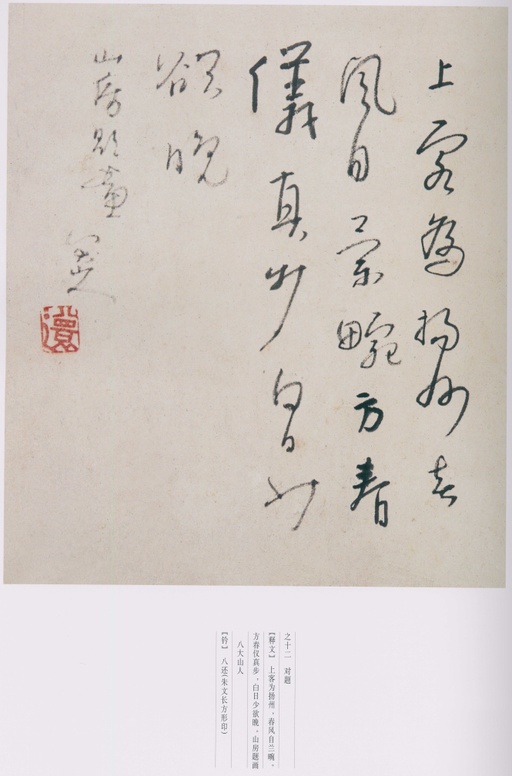 上客為揚州
風自蘭畹方春
儀真步白日少
欲晚
山房題畫 八大山人
之十二 对题
【释文】上客为扬州,春风自兰畹,
方春仪真步,白日少欲晚。山房题画
八大山人
【钤】八还(朱文长方形印)